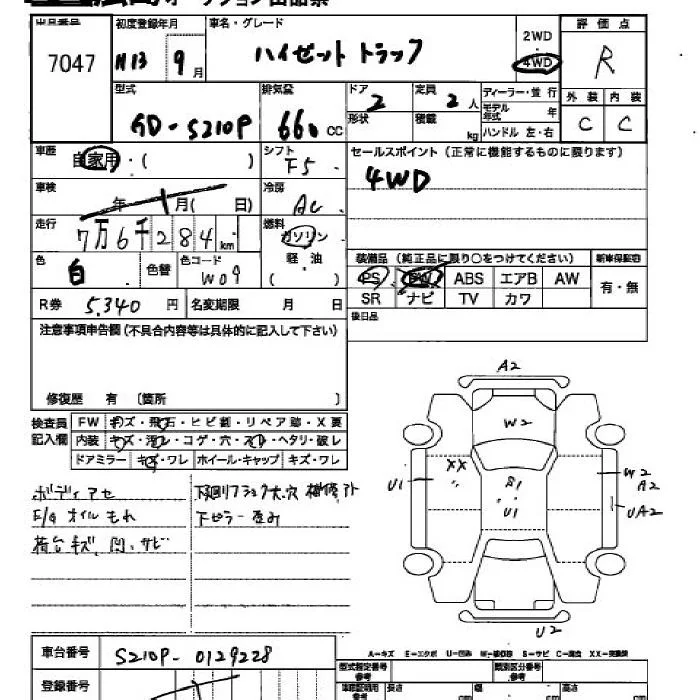 オークション出品票
出品番号 初度登録年月 車名・グレード 2WD 評価点
7047 H13 9月 ハイゼット トラック 4WD R
型式 排気量 ドア 定員 ディーラー・並行 外装 内装
GD-S210P 660 cc 2 2人 モデル年式 年 C C
形状 積載 kg ハンドル 左・右
車歴 自家用・( ) シフト F5 セールスポイント (正常に機能するものに限ります)
4WD
車検 年 月( 日) 冷房 AC
走行 7万6千284km 燃料 ガソリン
軽油
( )
色 白 色替 色コード W09
装備品 (純正品に限り○をつけてください) 新車保証書
PS PW ABS エアB AW 有・無
SR ナビ TV カワ
R券 5,340 円 名変期限 月 日
後日品
注意事項申告欄 (不具合内容等は具体的に記入して下さい)
修復歴 有 〔箇所 〕
検査員 FW キズ・飛石・ヒビ割・リペア跡・X要
記入欄 内装 キズ・汚レ・コゲ・穴・スレ・ヘタリ・破レ
ドアミラー キズ・ワレ ホイール・キャップ キズ・ワレ
ボディアセ
E/G オイルもれ
荷台キズ、凹、サビ
下回り
下セラー 歪み
A2
W2
XX
U1
S1
U1
W2
A2
UA2
U2
A-キズ E-エクボ U-凹み W-補修跡 S-サビ C-腐食 XX-交換済
車台番号 S210P-0129228
登録番号
型式指定番号 参考 類別区分番号 参考
車庫証明用 参考 長さ cm 幅 cm 高さ